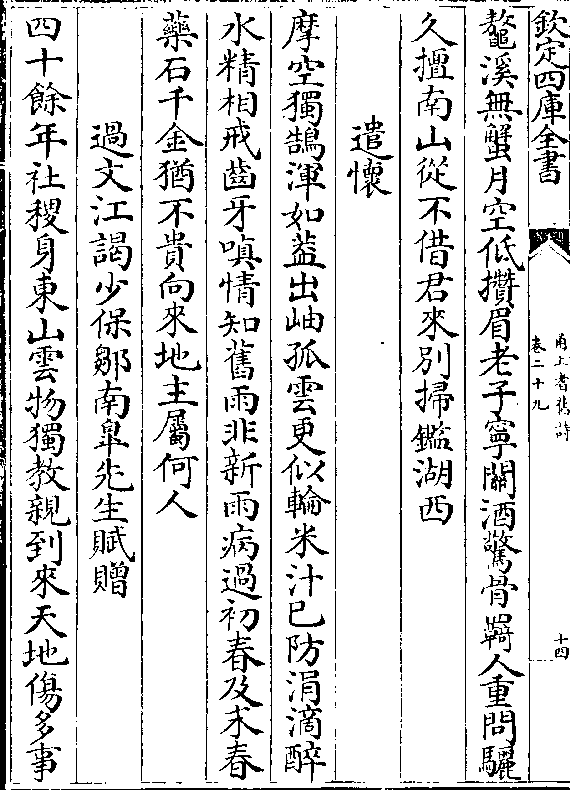 欽定四庫全書
甬上耆舊詩
卷二十九
十四
鼇溪無蟹月空低攢眉老子寧關酒驚骨羇人重問驪
久擅南山從不借君來別掃鑑湖西
遣懷
摩空獨鵠渾如葢出岫孤雲更似輪米汁已防涓滴醉
水精相戒齒牙嗔情知舊雨非新雨病過初春及末春
藥石千金猶不貴向來地主屬何人
過文江謁少保鄒南臯先生賦贈
四十餘年社稷身東山雲物獨教親到來天地傷多事